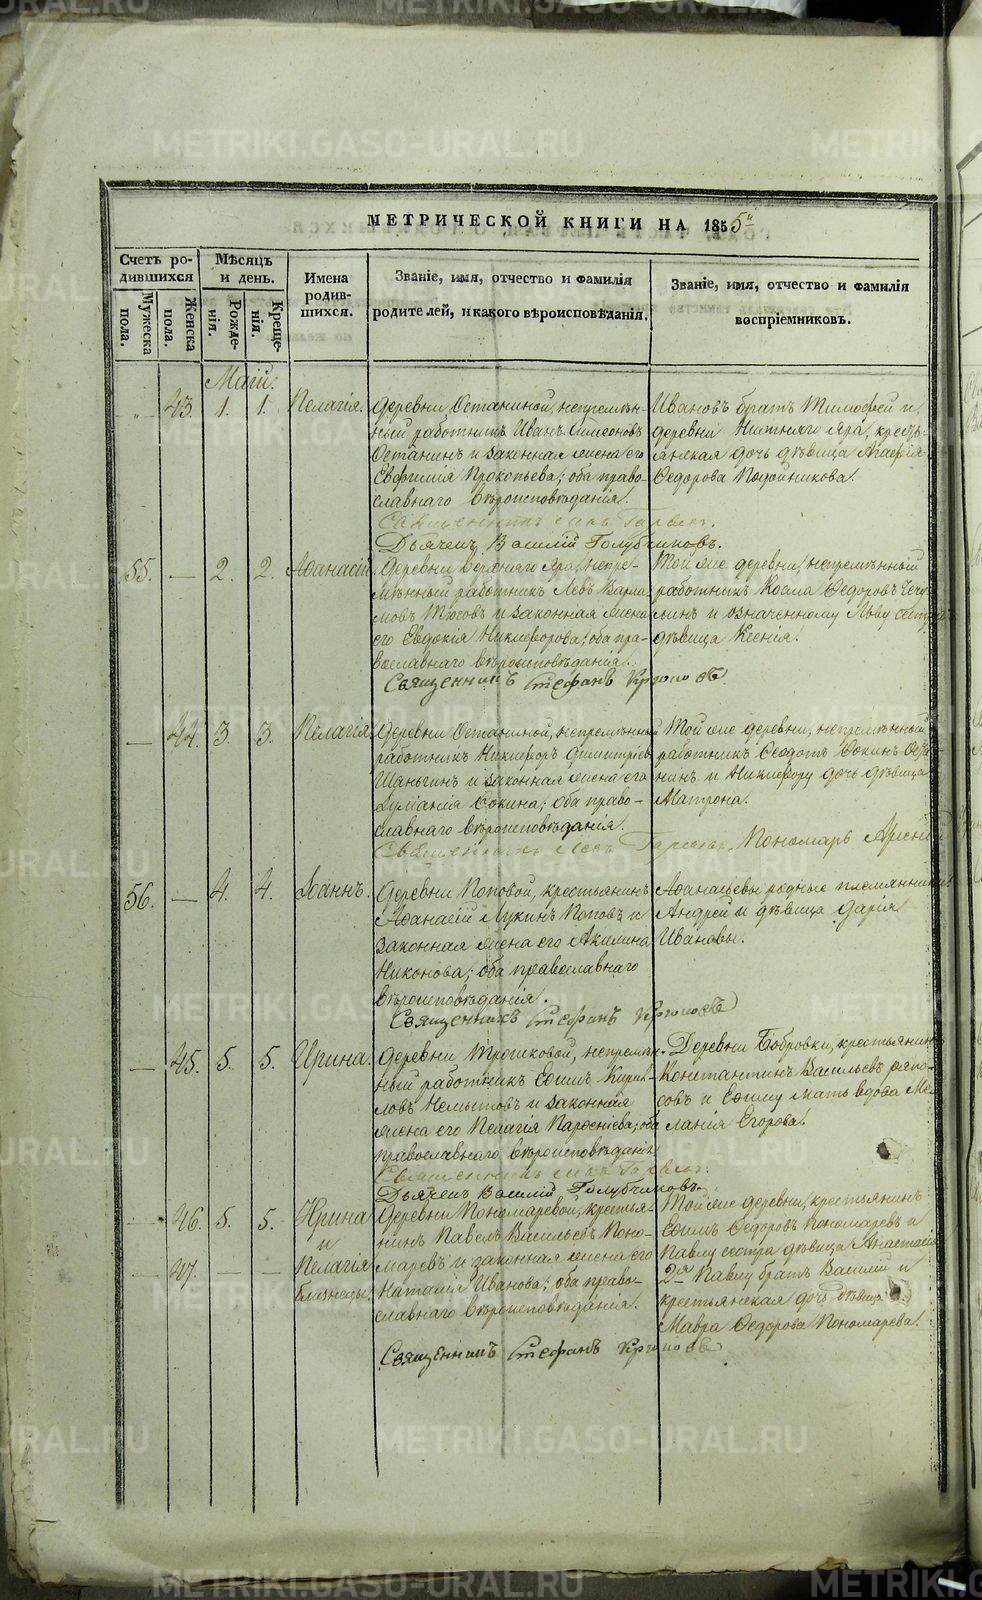 МЕТРИЧЕСКОЙ КНИГИ НА 1855й
Счетъ родившихся
Мѣсяцъ и день.
Имена родившихся.
Званіе, имя, отчество и фамилія родителей, и какого вѣроисповѣданія.
Званіе, имя, отчество и фамилія воспріемниковъ.
Мужеска пола.
Женска пола.
Рожденія.
Крещенія.
Маій.
„ 43. 1. 1. Пелагія.
Деревни Останиной, непремѣн-
ный работникъ Иванъ Симеоновъ
Останинъ и законная жена его
Евфимія Прокопьева; оба право-
славнаго вѣроисповѣданія.
Ивановъ братъ Тимофей и
деревни Нижняго Яра, кресть-
янская дочь дѣвица Агафія
Ѳедорова Подойникова.
Дьячекъ Василій Голубчиковъ.
55. — 2. 2. Аѳанасій.
Деревни Верхняго Яра, непре-
мѣнный работникъ Левъ Варла-
мовъ и законная жена
его Евдокія Никифорова; оба пра-
вославнаго вѣроисповѣданія.
Той же деревни, непремѣнный
работникъ Косма Ѳедоровъ
и означенному Льву сестра
дѣвица Ксенія.
Священникъ Стефанъ
— 44. 3. 3. Пелагія.
Деревни Останиной, непремѣнный
работникъ Никифоръ Димитріевъ
Шаньгинъ и законная жена его
Ѳокина; оба право-
славнаго вѣроисповѣданія.
Той же деревни, непремѣнный
работникъ Ѳеодотъ Ѳокинъ Оста-
нинъ и Никифору дочь дѣвица
Матрона.
Священникъ
Пономарь Арсеній
56. — 4. 4. Іоаннъ.
Деревни Поповой, крестьянинъ
Аѳанасій Лукинъ Поповъ и
законная жена его Акилина
Никонова; оба православнаго
вѣроисповѣданія.
Аѳанасьевы родные племянники:
Андрей и дѣвица Дарія
Ивановы.
Священникъ Стефанъ
— 45. 5. 5. Ирина.
Деревни Трошковой, непремѣн-
ный работникъ Ефимъ Кирил-
ловъ Немытовъ и законная
жена его Пелагія Парѳеніева; оба
православнаго вѣроисповѣданія.
Деревни Бобровки, крестьянинъ
Константинъ Васильевъ
и Ефиму мать вдова Ме-
ланія Егорова.
Дьячекъ Василій Голубчиковъ.
— 46. 5. 5. Ирина
и
47. — — Пелагія
близнецы.
Деревни Пономаревой, крестья-
нинъ Павелъ Васильевъ Поно-
маревъ и законная жена его
Наталія Иванова; оба право-
славнаго вѣроисповѣданія.
Той же деревни, крестьянинъ
Ефимъ Ѳедоровъ Пономаревъ и
Павлу сестра дѣвица Анастасія
2й Павлу братъ Василій и
крестьянская дочь дѣвица
Мавра Ѳедорова Пономарева.
Священникъ Стефанъ
METRIKI.GASO-URAL.RU